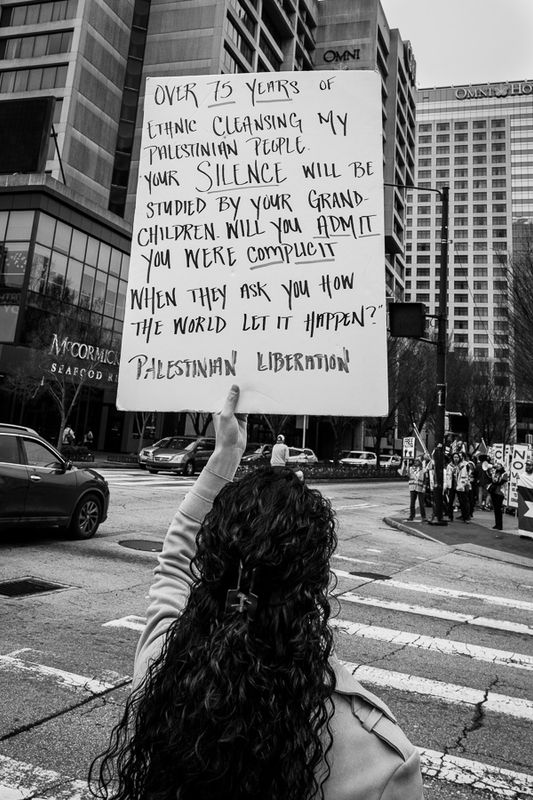 OMNI
OMNI HO
OVER 75 YEARS OF
ETHNIC CLEANSING MY
PALESTINIAN PEOPLE.
YOUR SILENCE WILL BE
STUDIED BY YOUR GRAND-
CHILDREN. WILL YOU ADMIT
YOU WERE COMPLICIT
WHEN THEY ASK YOU HOW
THE WORLD LET IT HAPPEN?"
PALESTINIAN LIBERATION
McCORMICK
SEAFOOD R
NOS